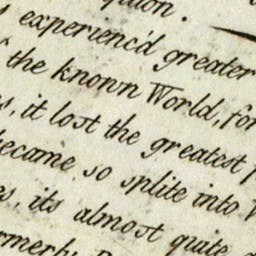 experienc'd greater
the knonn World, for
it lost the greatest
became so splite into
its almost quite